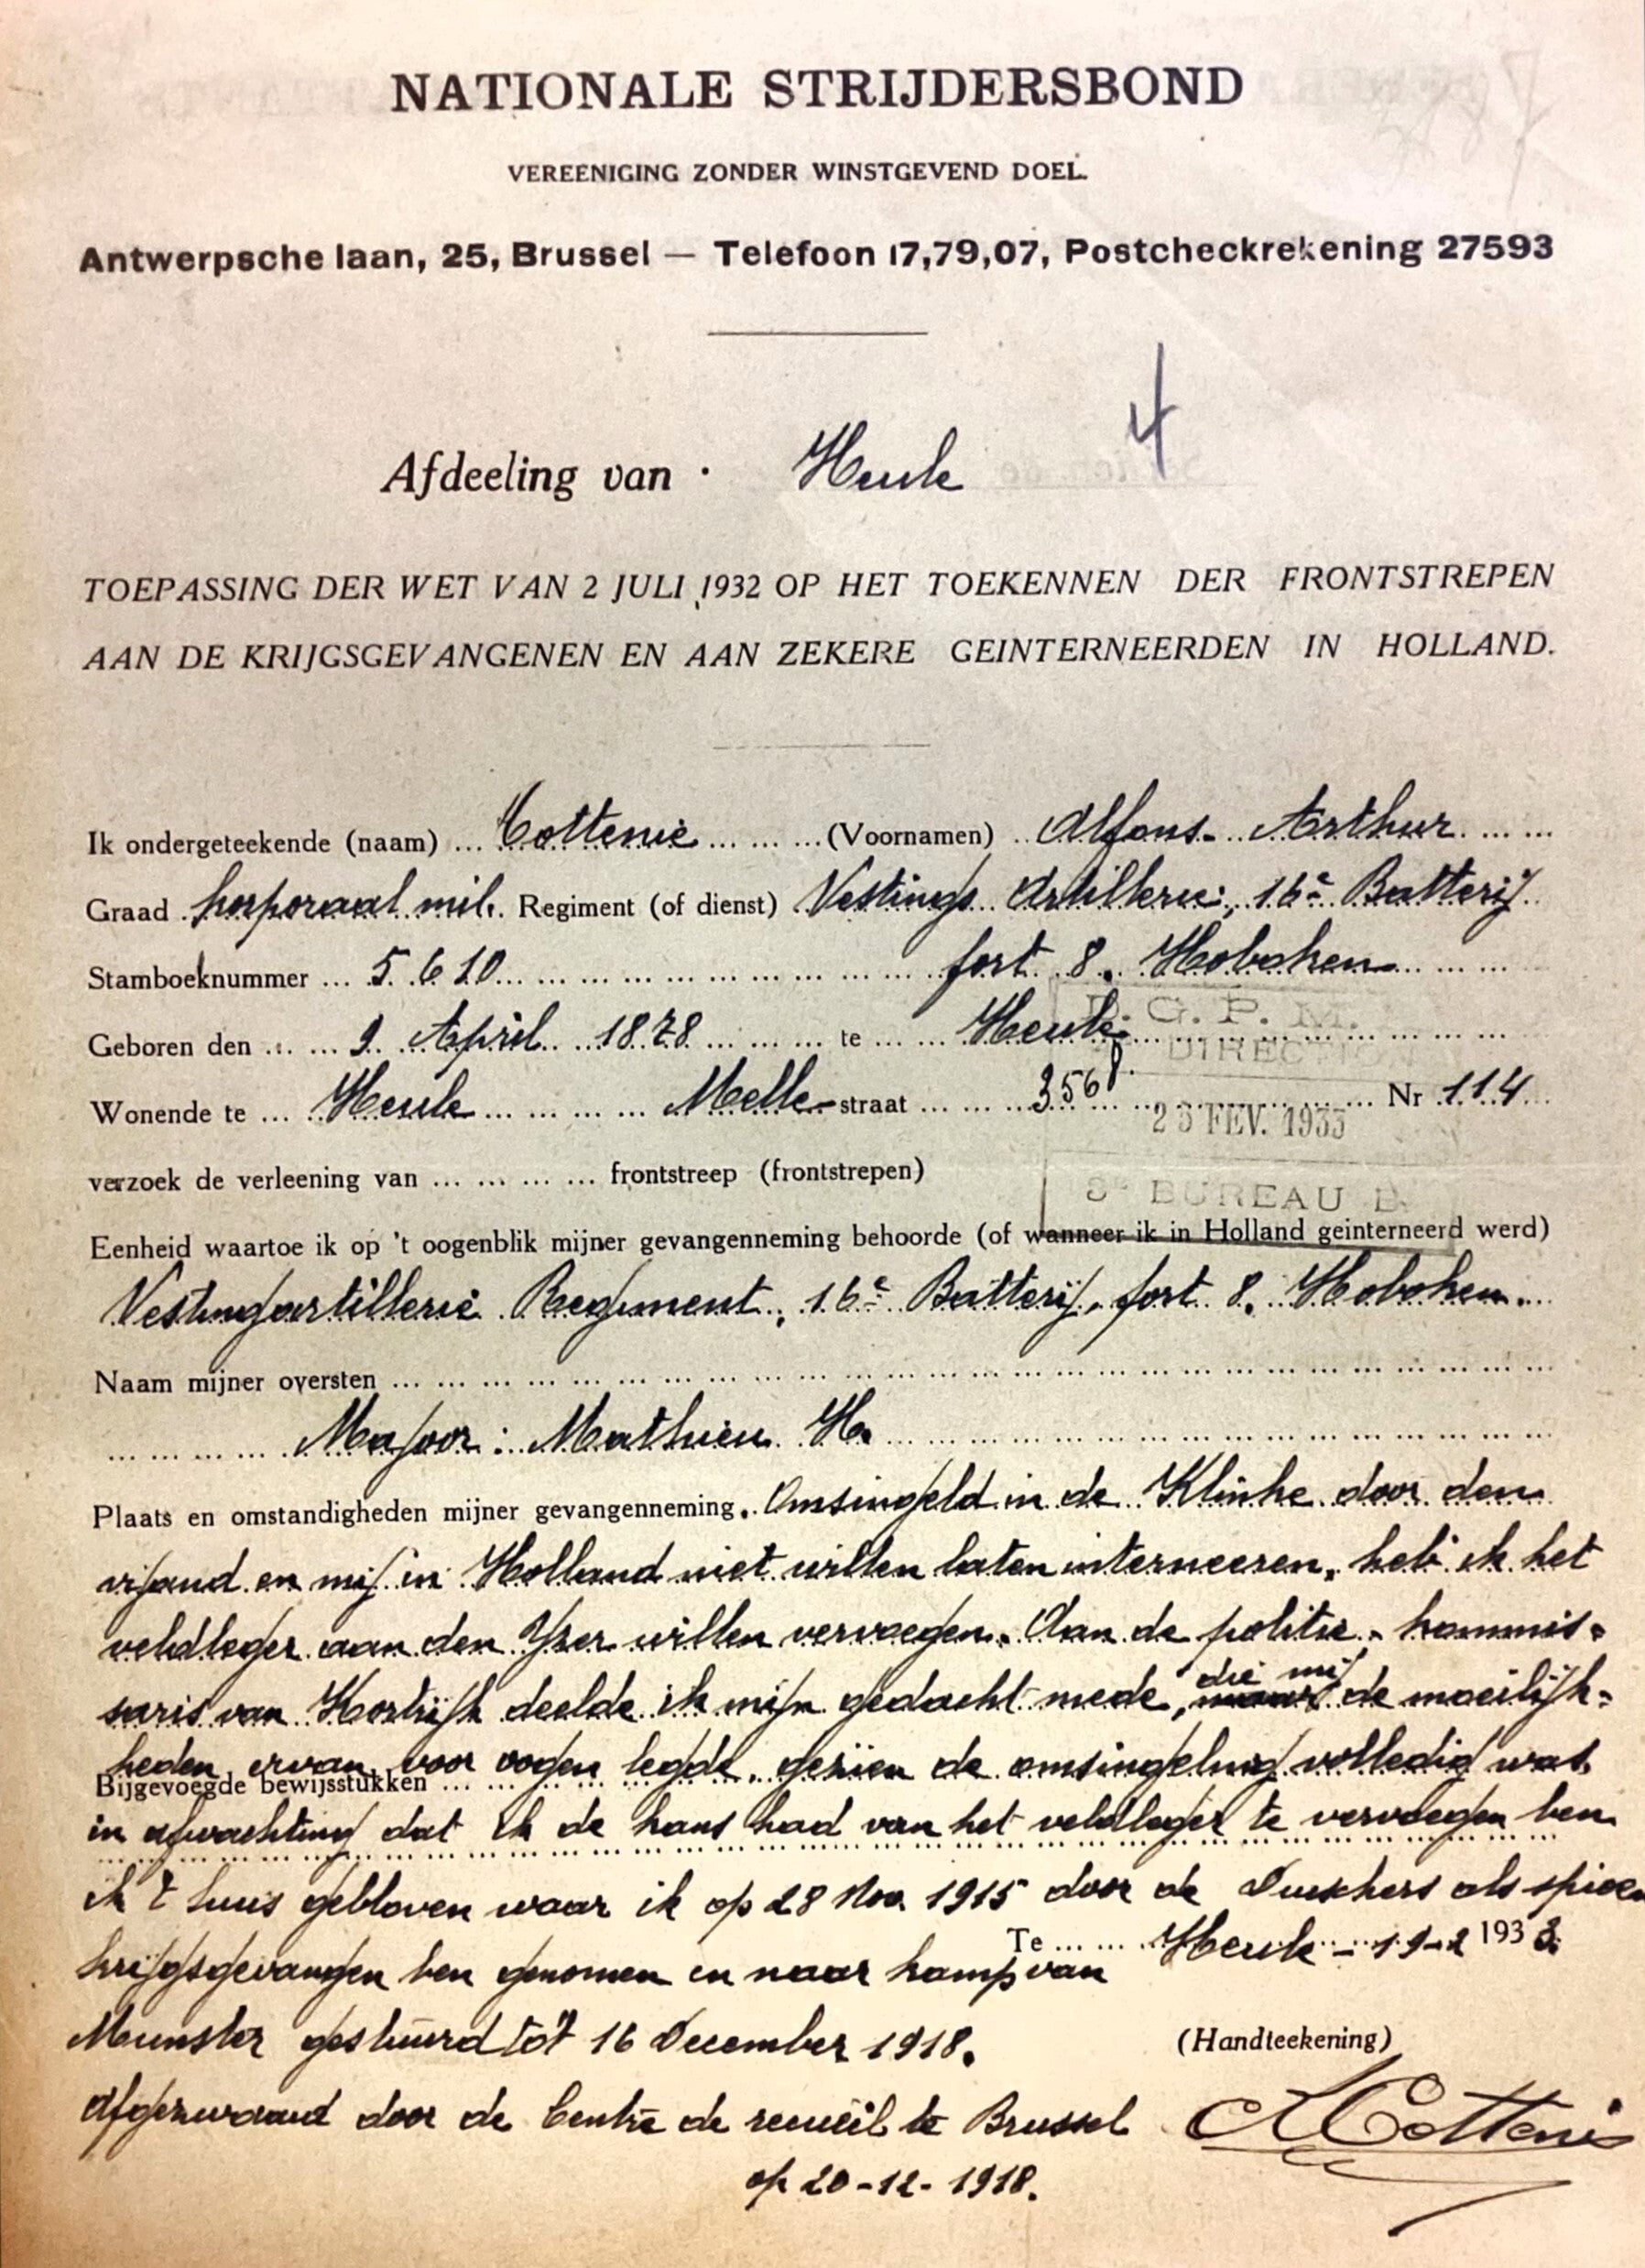 NATIONALE STRIJDERSBOND
VEREENIGING ZONDER WINSTGEVEND DOEL.
Antwerpsche laan, 25, Brussel — Telefoon 17,79,07, Postcheckrekening 27593
4
Afdeeling van Heule
TOEPASSING DER WET VAN 2 JULI 1932 OP HET TOEKENNEN DER FRONTSTREPEN
AAN DE KRIJGSGEVANGENEN EN AAN ZEKERE GEINTERNEERDEN IN HOLLAND.
Ik ondergeteekende (naam) ... Cottenie ... (Voornamen) .. Alfons - Arthur ...
Graad korporaal mil. Regiment (of dienst) Vestings Artillerie, 16e Batterij
Stamboeknummer ... 5610 ... fort 8. Hoboken ...
Geboren den ... 9 April 1878 ... te ... Heule ...
D. G. P. M.
DIRECTION
Wonende te ... Heule ... Melle-straat ... 3568. ... Nr 114
23 FEV. 1933
verzoek de verleening van ... ... ... ... frontstreep (frontstrepen)
3e BUREAU B
Eenheid waartoe ik op 't oogenblik mijner gevangenneming behoorde (of wanneer ik in Holland geinterneerd werd)
Vestingartillerie Regiment, 16e Batterij, fort 8. Hoboken.
Naam mijner oversten ...
... Majoor : Mathieu H. ...
Plaats en omstandigheden mijner gevangenneming. Omsingeld in de Klinke door den
vijand en mij in Holland niet willen laten interneeren, heb ik het
veldleger aan den Yzer willen vervoegen. Aan de politie-kommis-
saris van Kortrijk deelde ik mijn gedacht mede, die mij de moeilijk-
heden ervan voor oogen legde, gezien de omsingeling volledig was.
Bijgevoegde bewijsstukken ...
in afwachting dat ik de kans had van het veldleger te vervoegen ben
ik t huis gebleven waar ik op 28 Nov. 1915 door de Duischers als spioen
krijgsgevangen ben genomen en naar kamp van
Te ... Heule - 19-2 1933
Munster gestuurd tot 16 December 1918.
(Handteekening)
Afgezwaaid door de Centre de recueil te Brussel
A Cottenie
op 20-12-1918.